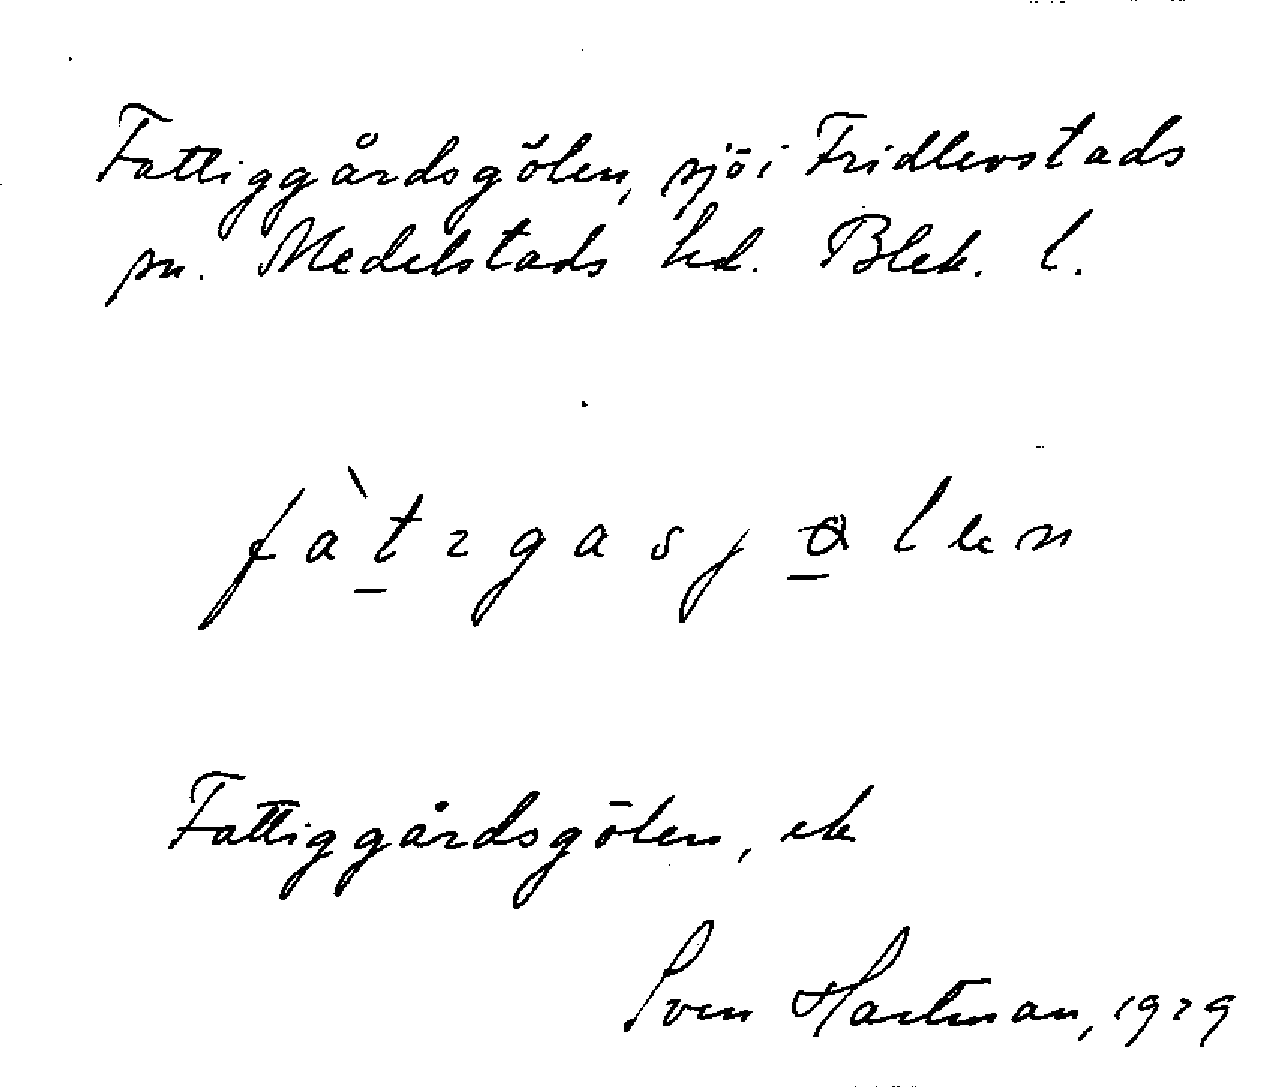 Fattiggårdsgölen, sjö i Fridlevstads
sn. Medelstads hd. Blek. l.
Fattiggårdsgölen, ek
Sven Hartman, 1929